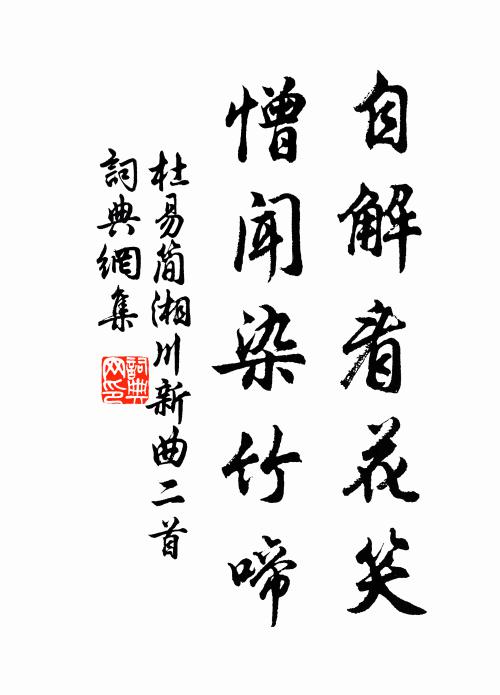 自解看花笑
憎聞染竹啼
杜易簡湘川新曲二首
詞典網集
詞典網印